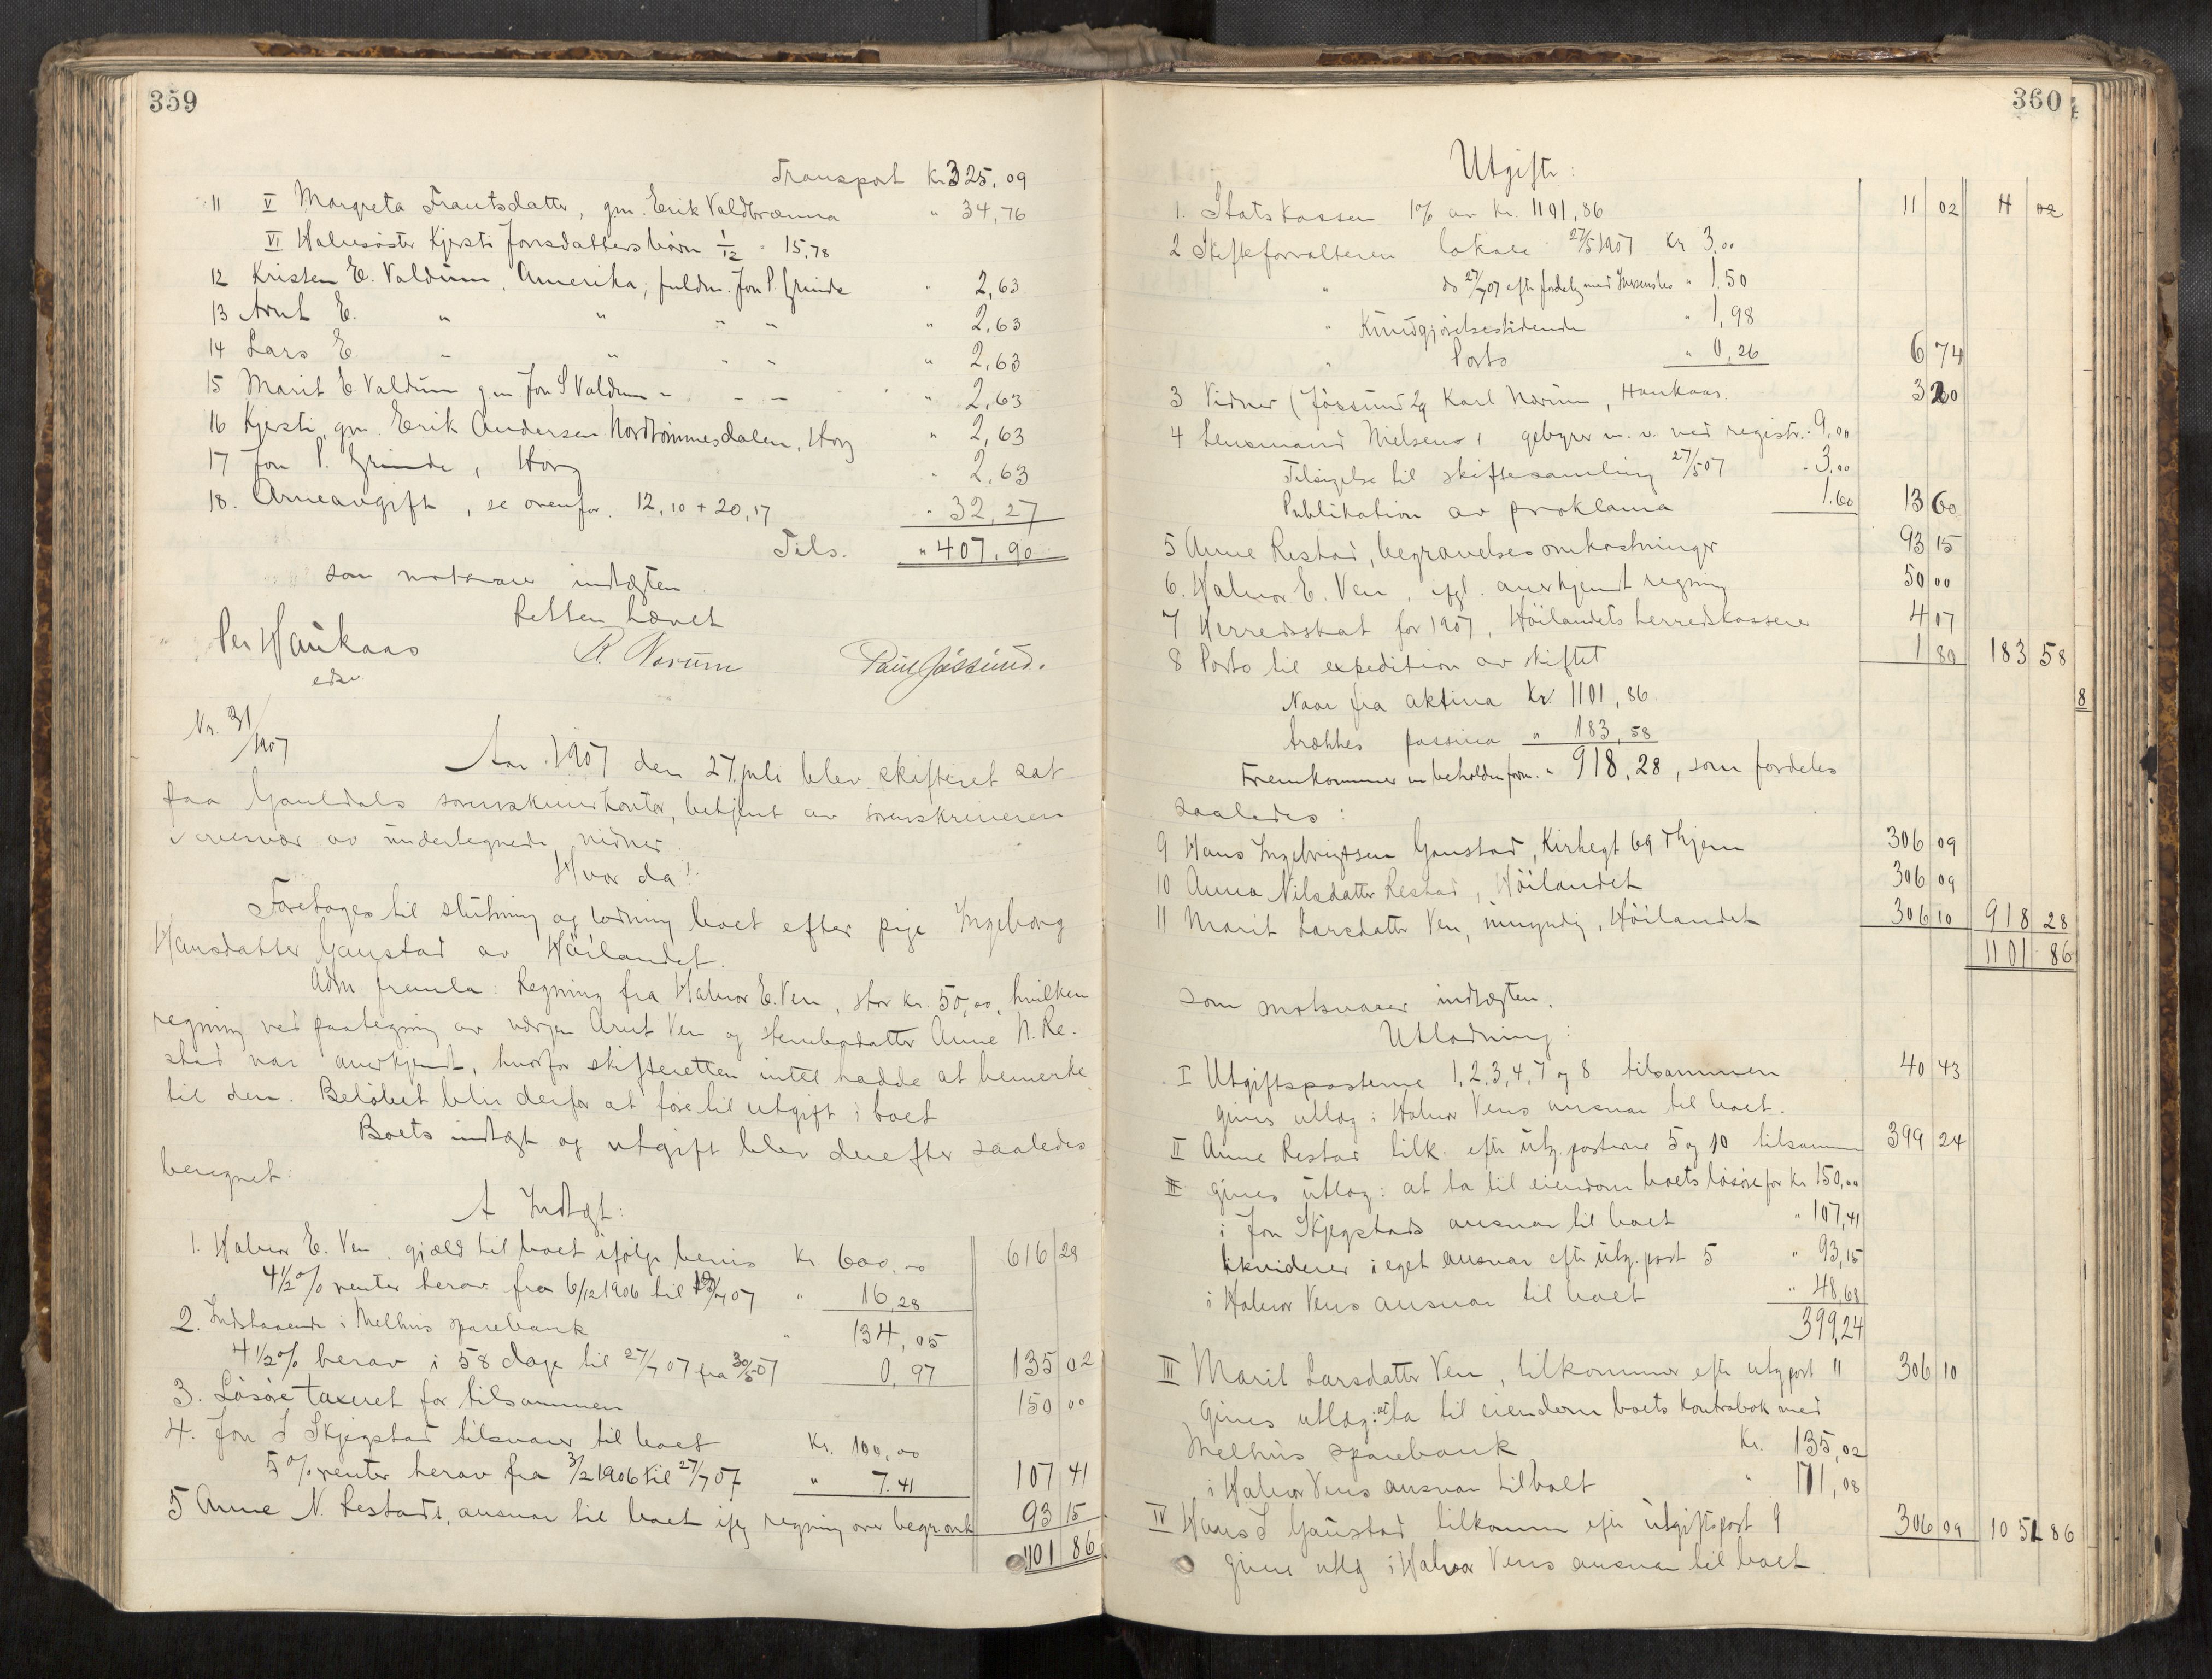 359
Transport Kr 325,09
11 V Margreta Frantsdatter, gm. Erik Valdbrænna " 34,76
VI Halvsøster Kjersti Jonsdatters børn 1/12 = 15,78
12 Kristen E. Valdum, Amerika; fuldm. Jon P. Grinde " 2,63
13 Arnt E. " " " " " 2,63
14 Lars E. " " " " " 2,63
15 Marit E Valdum gm Jon S Valdum " " " " 2,63
16 Kjersti, gm. Erik Andersen Nordtømmesdalen, Horg " 2,63
17 Jon P. Grinde, Horg " 2,63
18. Arveavgift, se ovenfor. 12,10 + 20,17 " 32,27
Tils. " 407,90
som motsvarer indtægten.
Retten hævet
Per Haukaas R. Norum Paul Jøssund.
edsv
Nr. 31/1907
Aar 1907 den 27. juli blev skifteret sat
paa Gauldals sorenskriverkontor, betjent av sorenskriveren
i overvær av undertegnede vidner.
Hvor da!
Foretoges til slutning og lodning boet efter pige Ingeborg
Hansdatter Gaustad av Høilandet.
Adm. fremla: Regning fra Halvor E. Ven, stor kr. 50,00, hvilken
regning ved paategning av værgen Arnt Ven og stervbodatter Anne N. Re-
stad var anerkjendt, hvorfor skifteretten intet hadde at bemerke
til den. Beløbet blir derfor at føre til utgift i boet
Boets indtægt og utgift blev derefter saaledes
beregnet:
A Indtægt:
1. Halvor E. Ven, gjæld til boet ifølge bevis Kr. 600,00 616 28
4 1/2 % renter herav fra 6/12 1906 til 07 " 16,28
2. Indstaaende i Melhus sparebank " 134,05
4 1/2 % herav i 58 dage til 27/7 07 fra 30/5 07 0,97 135 02
3. Løsøre taxeret for tilsammen 150 00
4. Jon I Skjegstad tilsvarer til boet Kr. 100,00
5 % renter herav fra 3/2 1906 til 27/7 07 " 7.41 107 41
5 Anne N. Restads, ansvar til boet ifg regning over begr.omk 93 15
1101 86
360
Utgift:
1. Statskassen 1% av kr. 1101,86 11 02 11 02
2 Skifteforvalteren lokale 27/5 1907 Kr 3,00
" do 27/7 07 efter fordeling med " 1,50
" Kundgjørelsestidende " 1,98
" Porto " 0,26 6 74
3 Vidner (Jøssund og Karl Norum, Haukaas. 3 20
4 Lensmand Nielsens: gebyrer m. v. ved registr. - 9,00
Tilsigelse til skiftesamling 27/5 07 - 3,00
Publikation av proklama 1.60 13 60
5 Anne Restad, begravelsesomkostninger 93 15
6. Halvor E. Ven, ifgl. anerkjendt regning 50 00
7 Herredsskat for 1907, Høilandets herredskasserer 4 07
8 Porto til expedition av skiftet 1 80 183 58
Naar fra aktiva Kr. 1101,86
trækkes passiva " 183,58
Fremkommer en beholden form. " 918,28, som fordeles
saaledes:
9 Hans Ingebrigtsen Gaustad, Kirkegt 69 Thjem 306 09
10 Anna Nilsdatter Restad, Høilandet 306 09
11 Marit Larsdatter Ven, umyndig, Høilandet 306 10 918 28
1101 86
som motsvarer indtægten.
Utlodning:
I Utgiftsposterne 1,2,3,4,7 og 8 tilsammen 40 43
gives utlæg i Halvor Vens ansvar til boet.
II Anne Restad tilk. efter utg. posterne 5 og 10 tilsammen 399 24
gives utlæg: at ta til eiendom boets løsøre for Kr 150,00
i Jon Skjegstads ansvar til boet " 107,41
likviderer i eget ansvar efter utg. post 5 " 93,15
i Halvor Vens ansvar til boet " 48,68
399,24
III Marit Larsdatter Ven, tilkommer efter utg post 11 306 10
Gives utlæg: at ta til eiendom boets kontrabok med
Melhus sparebank Kr. 135,02
i Halvor Vens ansvar til boet " 171,08
IV Hans I Gaustad tilkommer efter utgiftspost 9 306 09 1051 86
gives utlg i Halvor Vens ansvar til boet
8